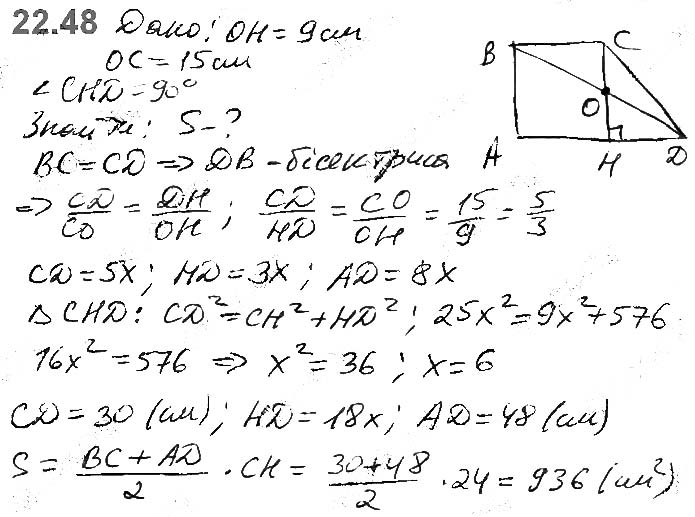 22.48 Дано: OH = 9 см
OC = 15 см
∠ CHD = 90°
Знайти: S - ?
BC = CD => DB - бісектриса
=> CD/CO = DH/OH ; CD/HD = CO/OH = 15/9 = 5/3
CD = 5x ; HD = 3x ; AD = 8x
Δ CHD: CD² = CH² + HD² ; 25x² = 9x² + 576
16x² = 576 => x² = 36 ; x = 6
CD = 30 (см) ; HD = 18x ; AD = 48 (см)
S = BC + AD/2 · CH = 30 + 48/2 · 24 = 936 (см²)
B C
O
A H D